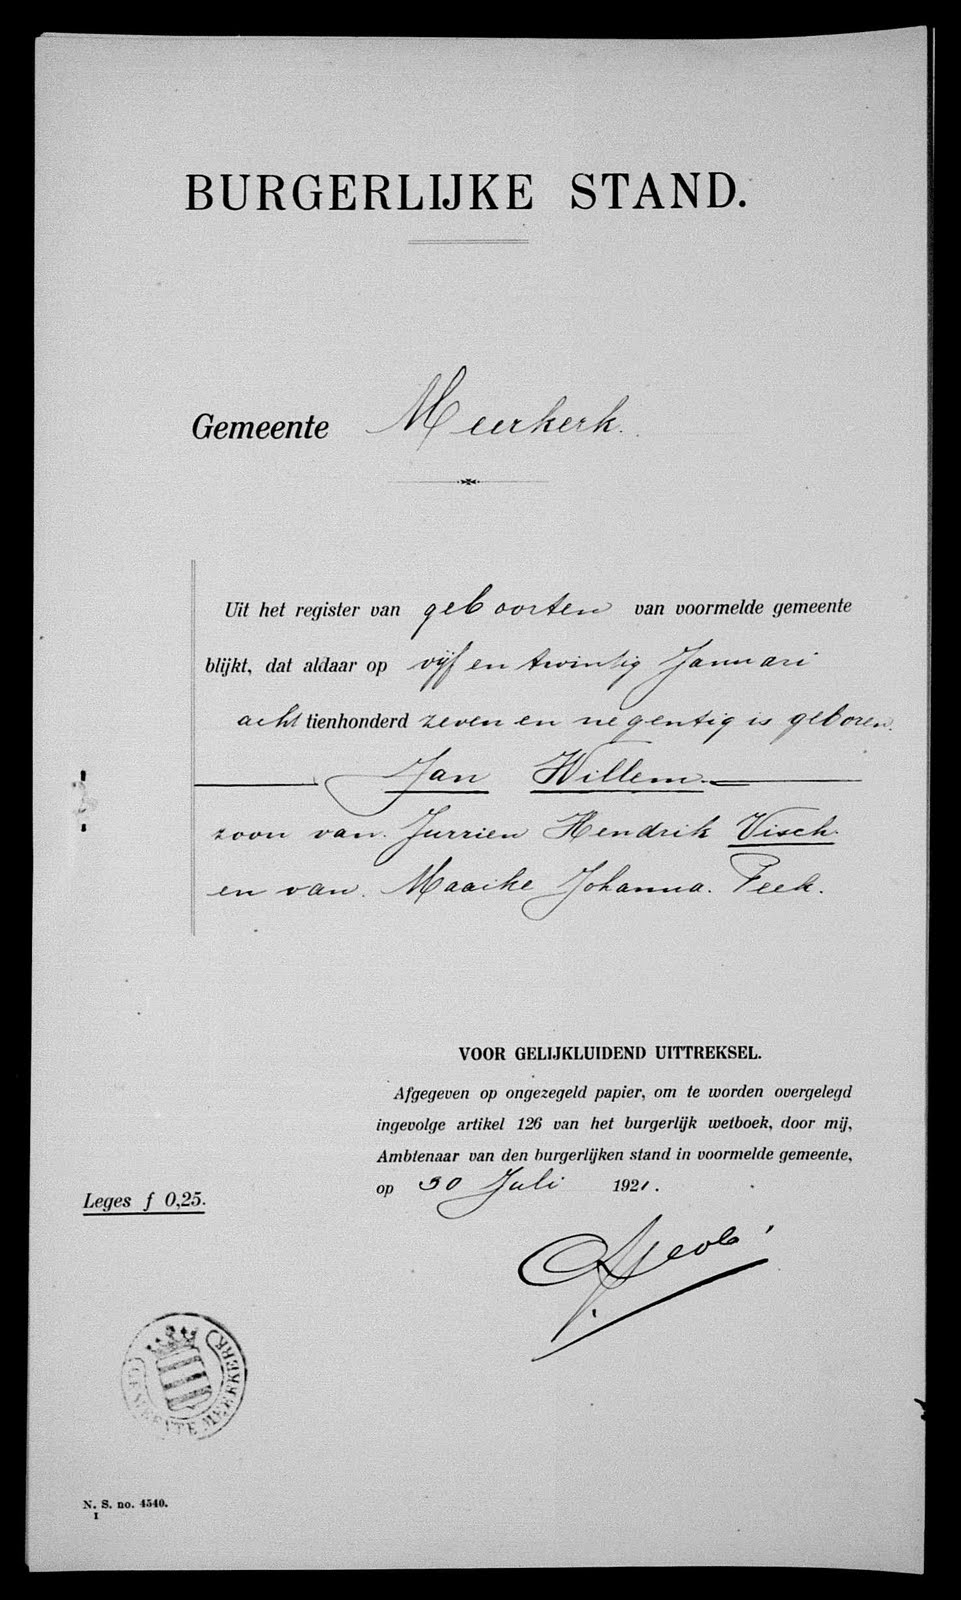 BURGERLIJKE STAND.
Gemeente Meerkerk.
Uit het register van geboorten van voormelde gemeente
blijkt, dat aldaar op vijf en twintig Januari
acht tienhonderd zeven en negentig is geboren.
Jan Willem
zoon van Jurrien Hendrik Visch
en van Maaike Johanna Peek.
VOOR GELIJKLUIDEND UITTREKSEL.
Afgegeven op ongezegeld papier, om te worden overgelegd
ingevolge artikel 126 van het burgerlijk wetboek, door mij,
Ambtenaar van den burgerlijken stand in voormelde gemeente,
op 30 Juli 1921.
Leges f 0,25.
GEMEENTE MEERKERK
N. S. no. 4540.
I